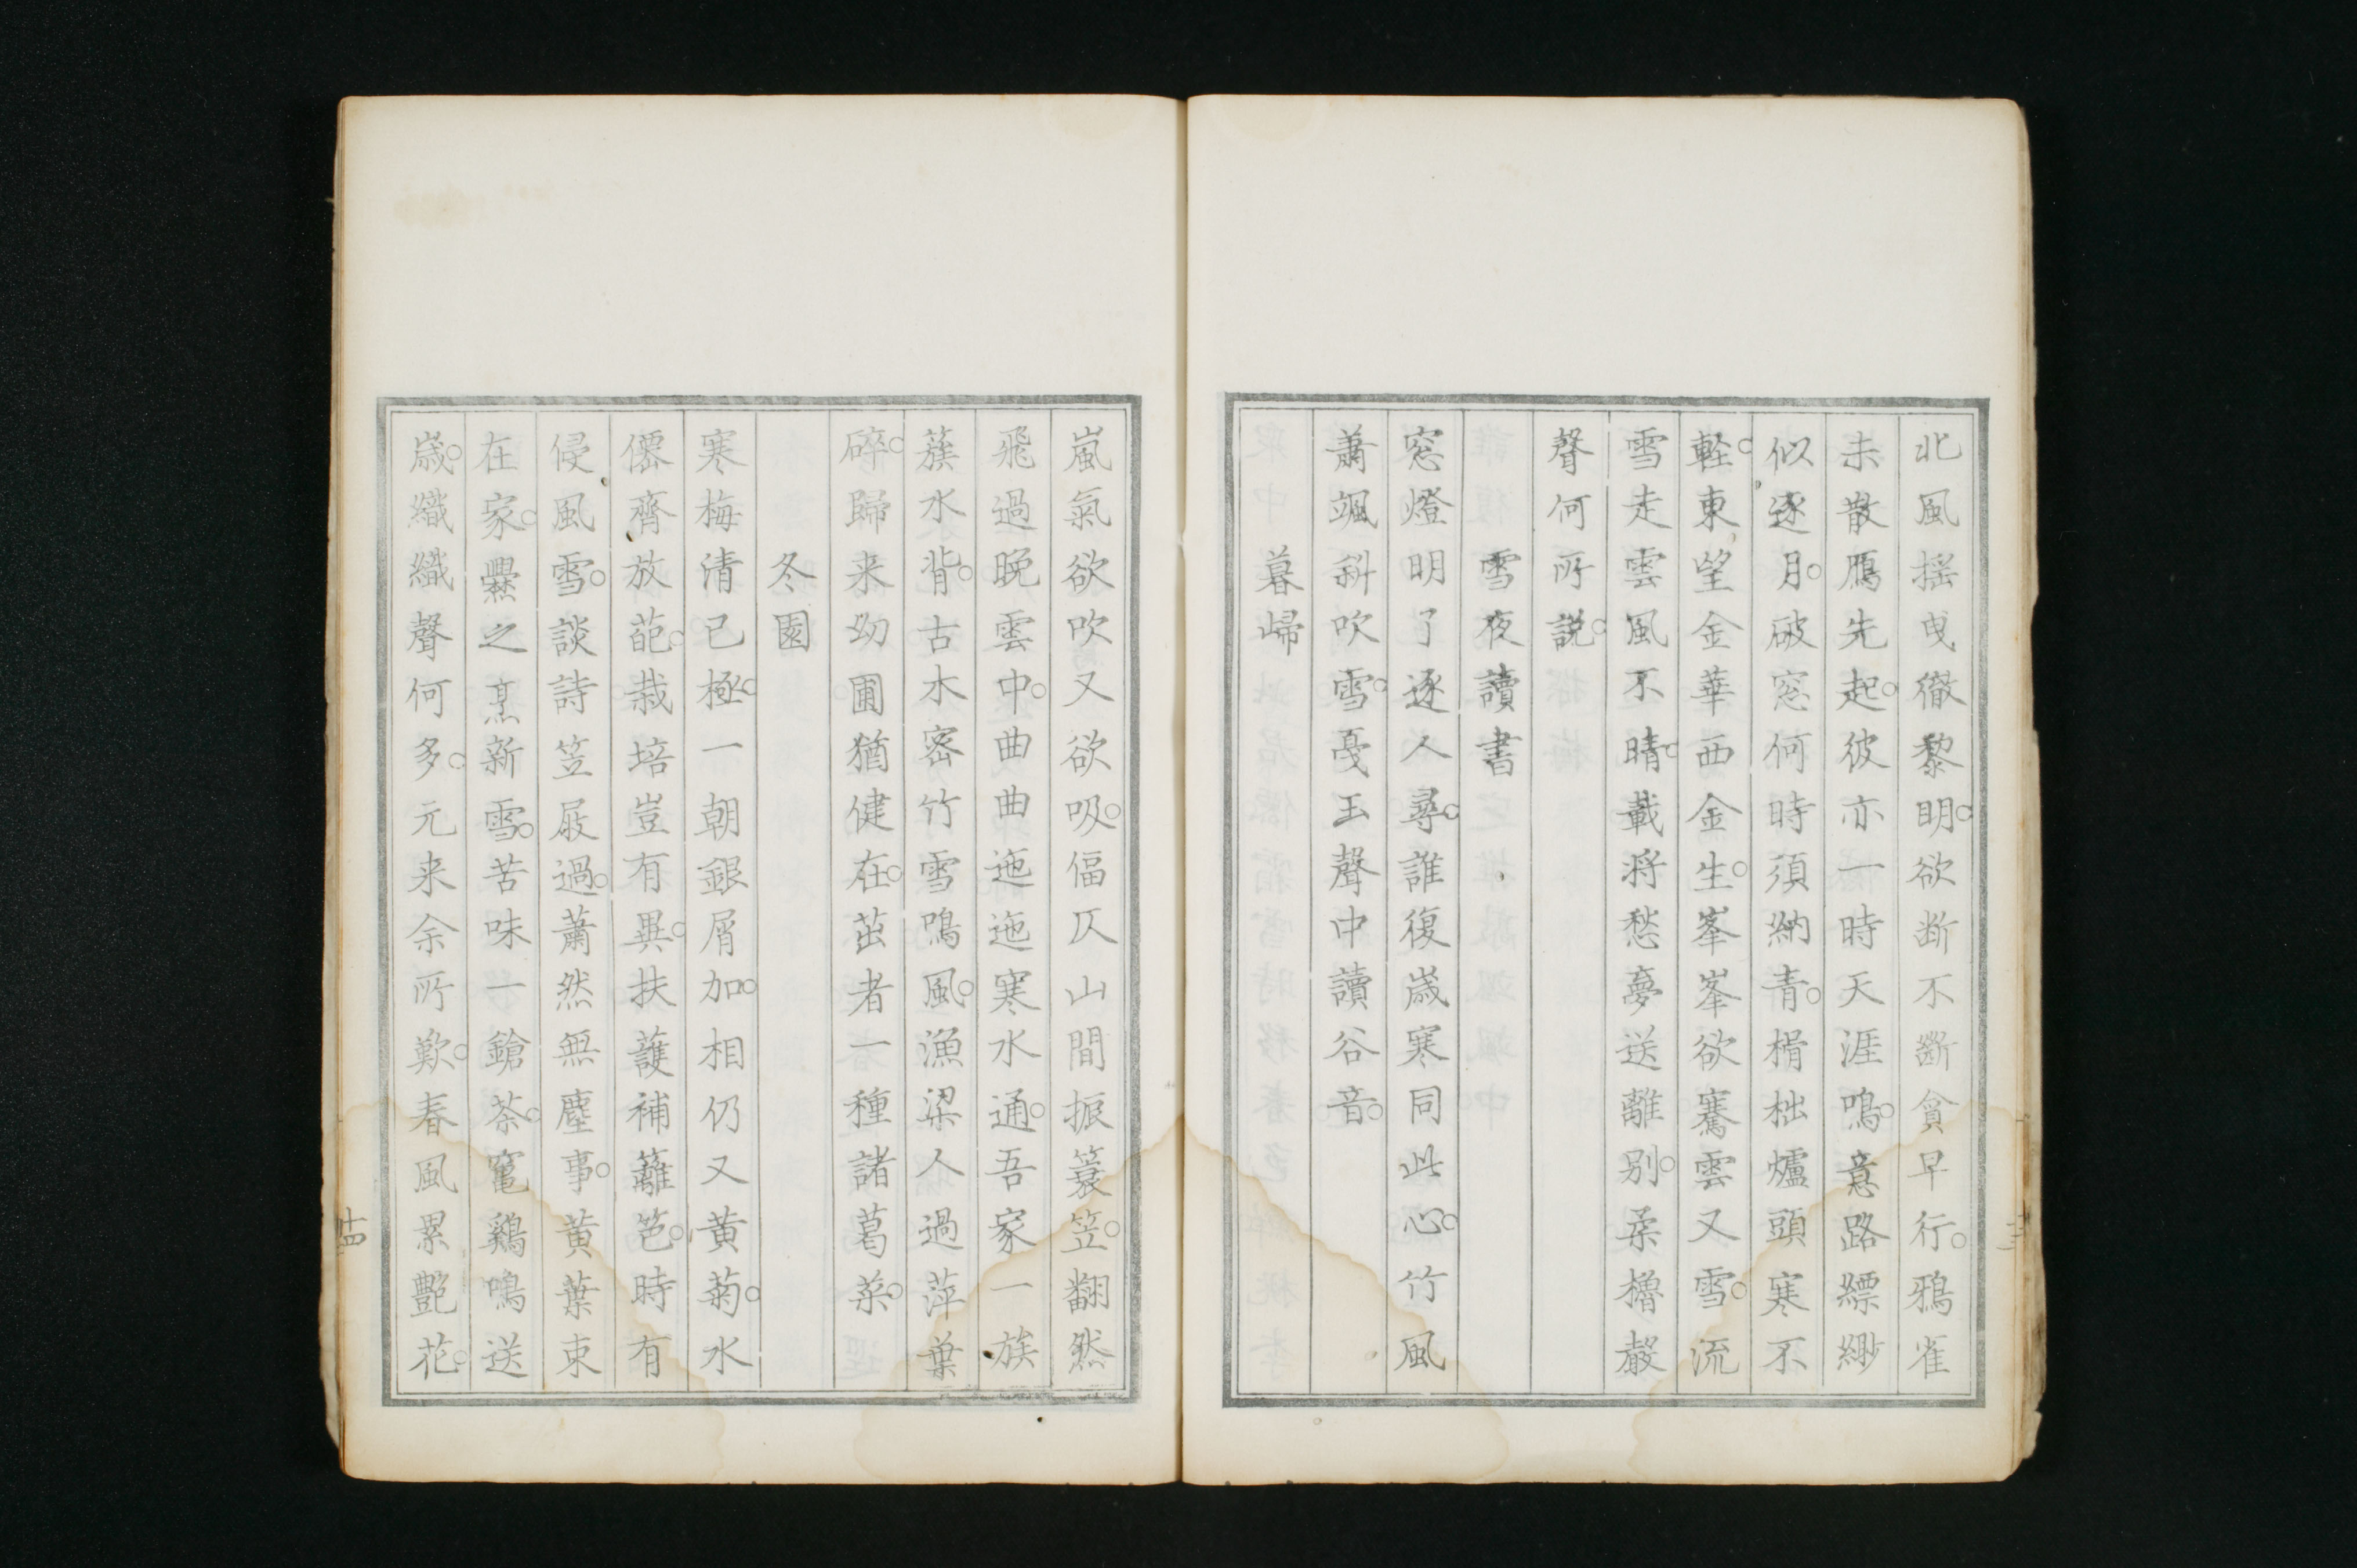 北風搖曳徹黎明。欲断不斷貪早行。鴉雀
未散鴈先起。彼亦一時天涯鳴。意路縹緲
似逐月。破窓何時須納青。榾柮爐頭寒不
軽。東望金華西金生。峯峯欲騫雲又雪。流
雪走雲風不晴。載将愁夢送離別。柔櫓聲
聲何所説。
雪夜讀書
窓燈明了逐人尋。誰復歲寒同此心。竹風
蕭颯斜吹雪。戞玉聲中讀谷音。
暮歸
嵐氣欲吹又欲吸。偪仄山間振簔笠。翻然
飛過晩雲中。曲曲迤迤寒水通。吾家一族
蔟水背。古木密竹雪鳴風。漁梁人過萍葉
碎。歸来幼圃猶健在。茁者一種諸葛菜。
冬園
寒梅清已極。一朝銀屑加。相仍又黄菊。水
僊齊放葩。栽培豈有異。扶護補籬笆。時有
侵風雪。談詩笠屐過。蕭然無塵事。黄葉束
在家。爨之烹新雪。苦味一鎗茶。竃鷄鳴送
歲。織織聲何多。元来余所歎。春風累艷花。
十四